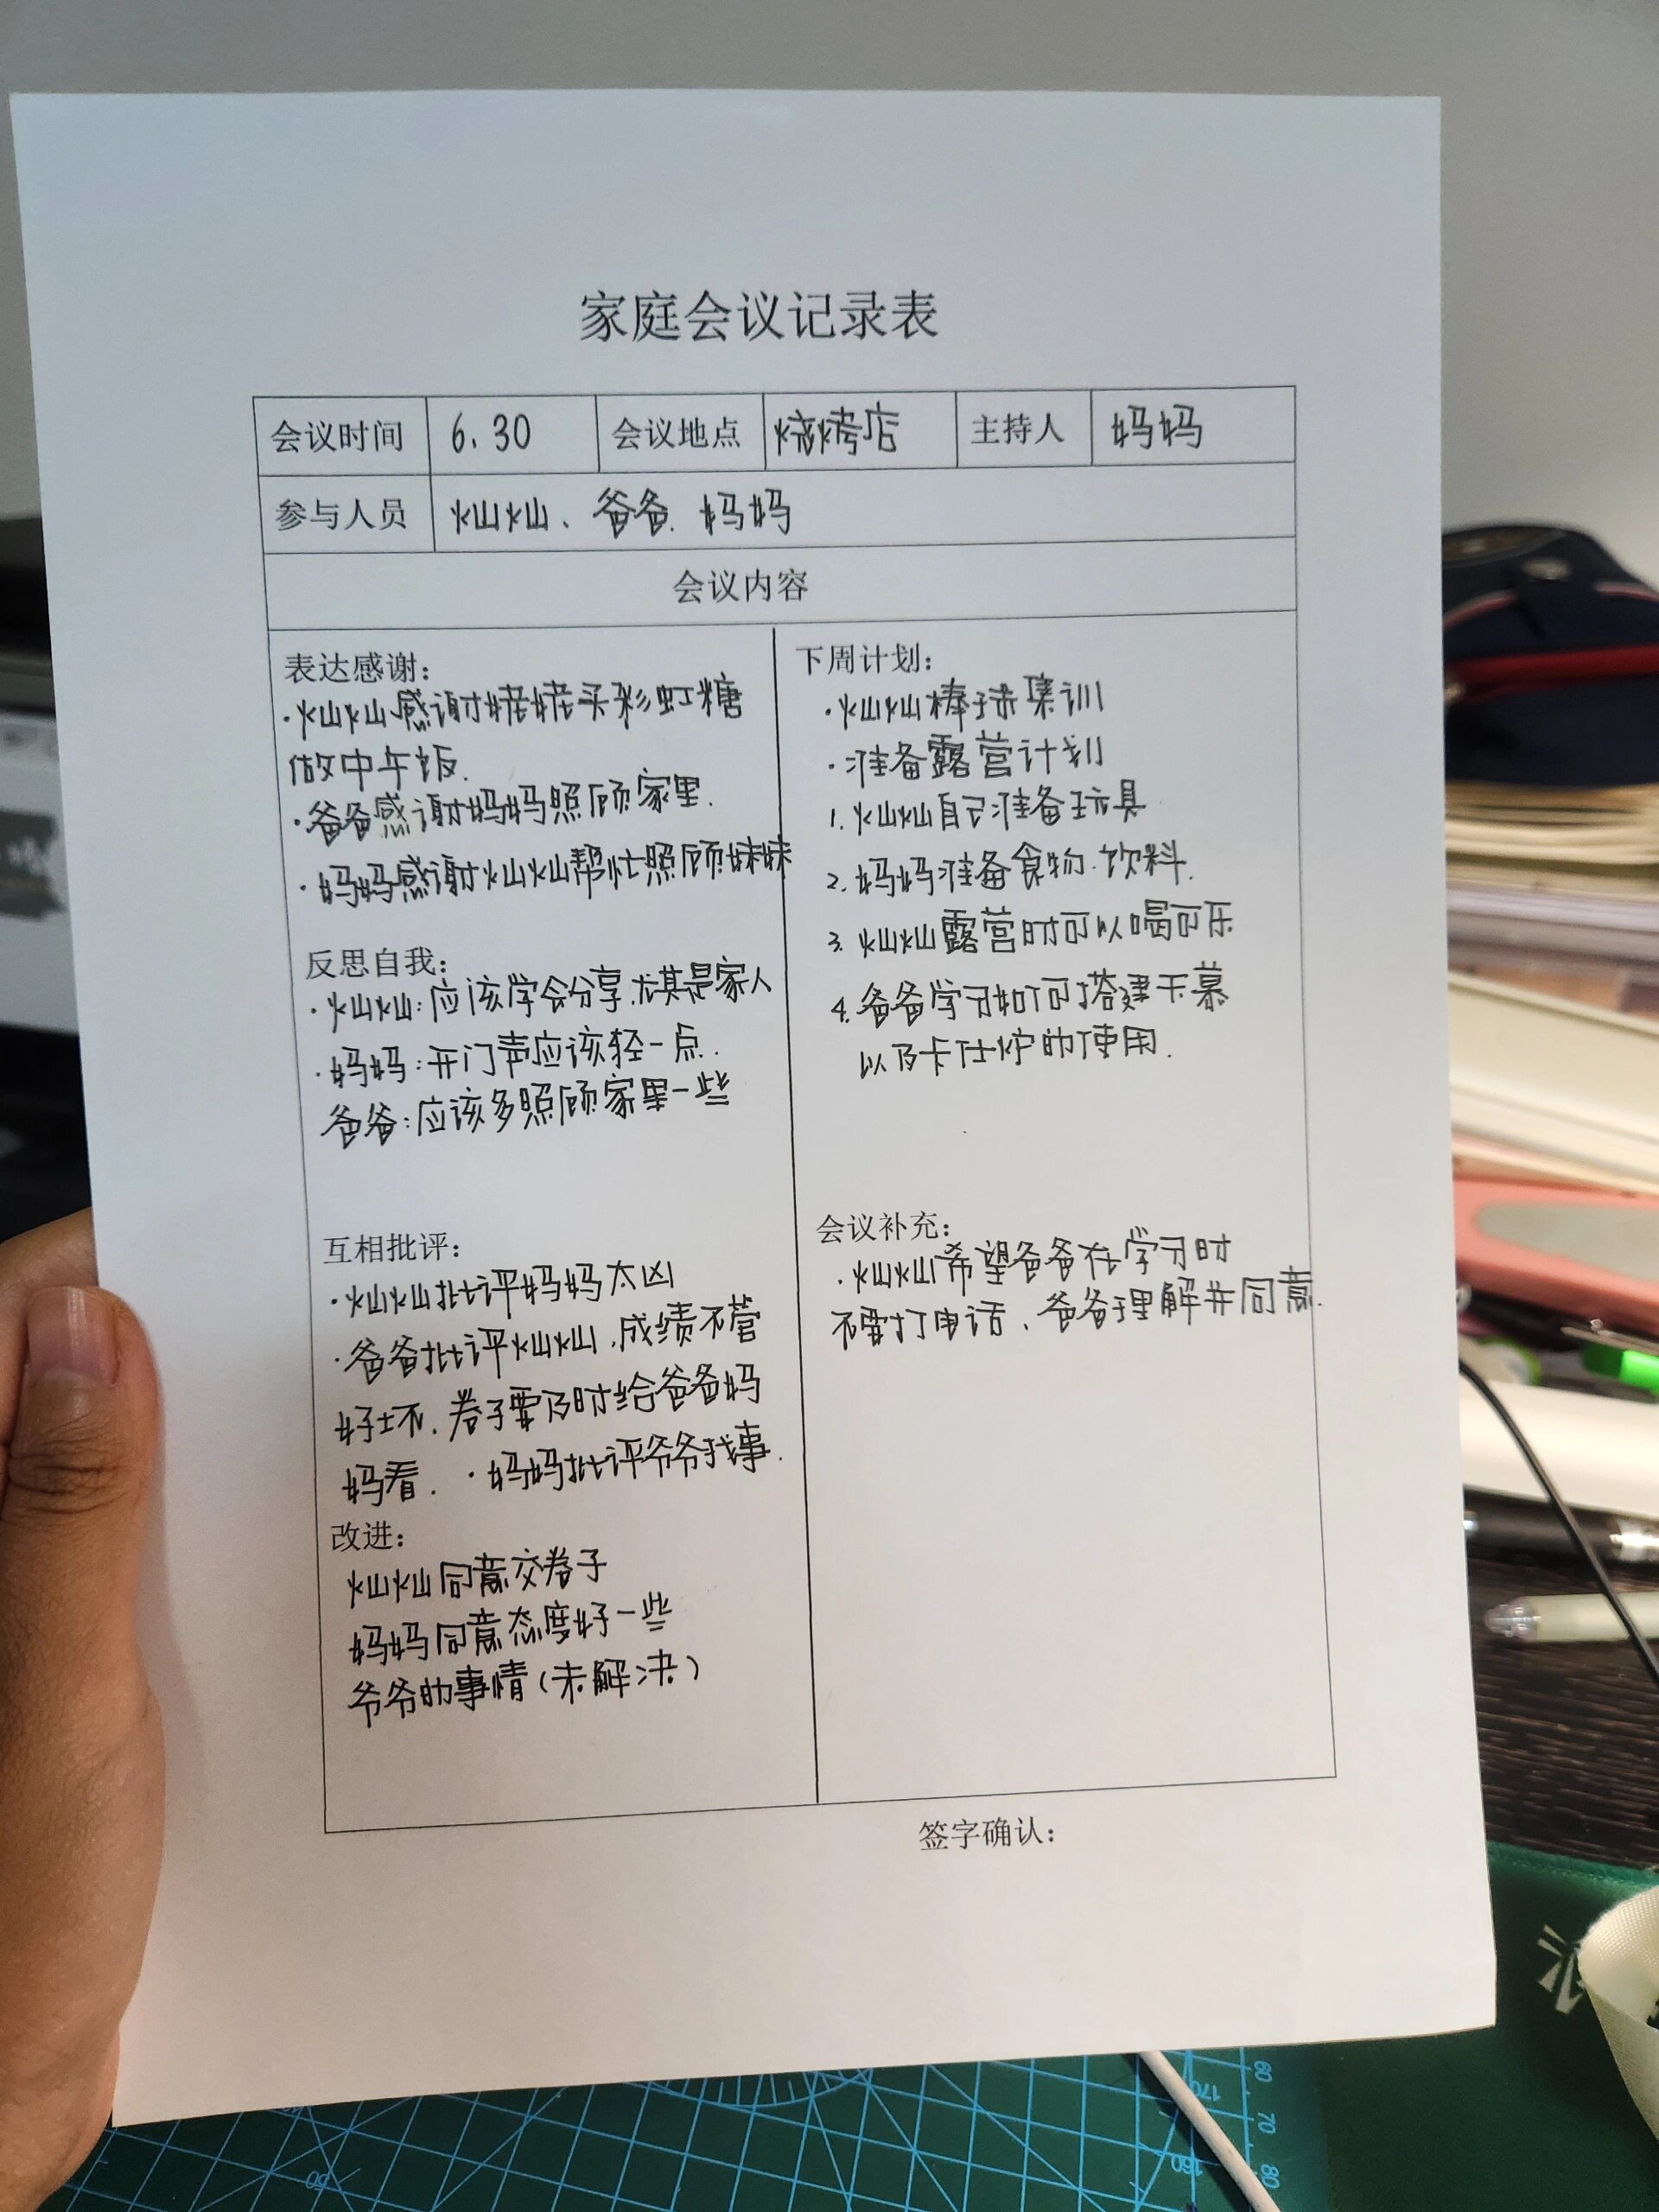 家庭会议记录表
会议时间 6.30 会议地点 烧烤店 主持人 妈妈
参与人员 灿灿、爸爸、妈妈
会议内容
表达感谢:
·灿灿感谢姥姥买彩虹糖
做中午饭.
·爸爸感谢妈妈照顾家里.
·妈妈感谢灿灿帮忙照顾妹妹
反思自我:
·灿灿:应该学会分享.尤其是家人
·妈妈:开门声应该轻一点.
爸爸:应该多照顾家里一些
互相批评:
·灿灿批评妈妈太凶
·爸爸批评灿灿,成绩不管
好坏.卷子要及时给爸爸妈
妈看. ·妈妈批评爷爷找事.
改进:
灿灿同意交卷子
妈妈同意态度好一些
爷爷的事情(未解决)
下周计划:
·灿灿棒球集训
·准备露营计划
1.灿灿自己准备玩具
2.妈妈准备食物.饮料.
3.灿灿露营时可以喝可乐
4.爸爸学习如何搭建天幕
以及卡仕炉的使用.
会议补充:
·灿灿希望爸爸在学习时
不要打电话、爸爸理解并同意.
签字确认:
60
70
80
170
160
50